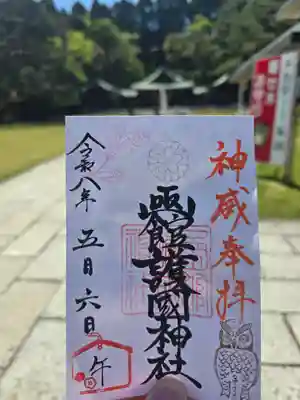 神威奉拝
凾館護國神社
令和八年
五月六日
午